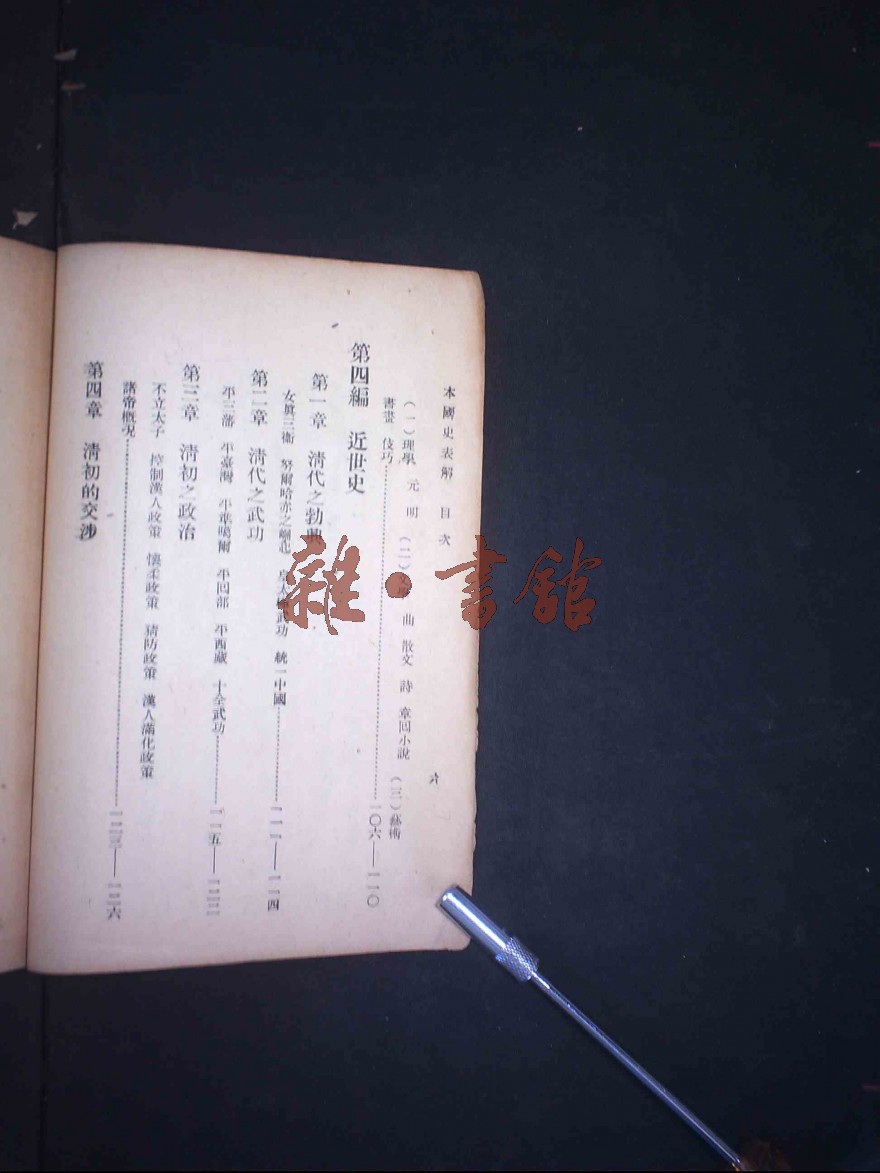 本國史表解 目次
六
(一)理學 元 明 (二)文學 曲 散文 詩 章回小說 (三)藝術
書畫 伎巧……一〇六——一一〇
第四編 近世史
第一章 清代之勃興
女眞三衛 努爾哈赤之崛起 武功 統一中國……一一一——一一四
第二章 清代之武功
平三藩 平臺灣 平準噶爾 平回部 平西藏 十全武功……一一五——一二二
第三章 清初之政治
不立太子 控制漢人政策 懷柔政策 猜防政策 漢人滿化政策
諸帝概況……一二三——一二六
第四章 清初的交涉
雜·書館